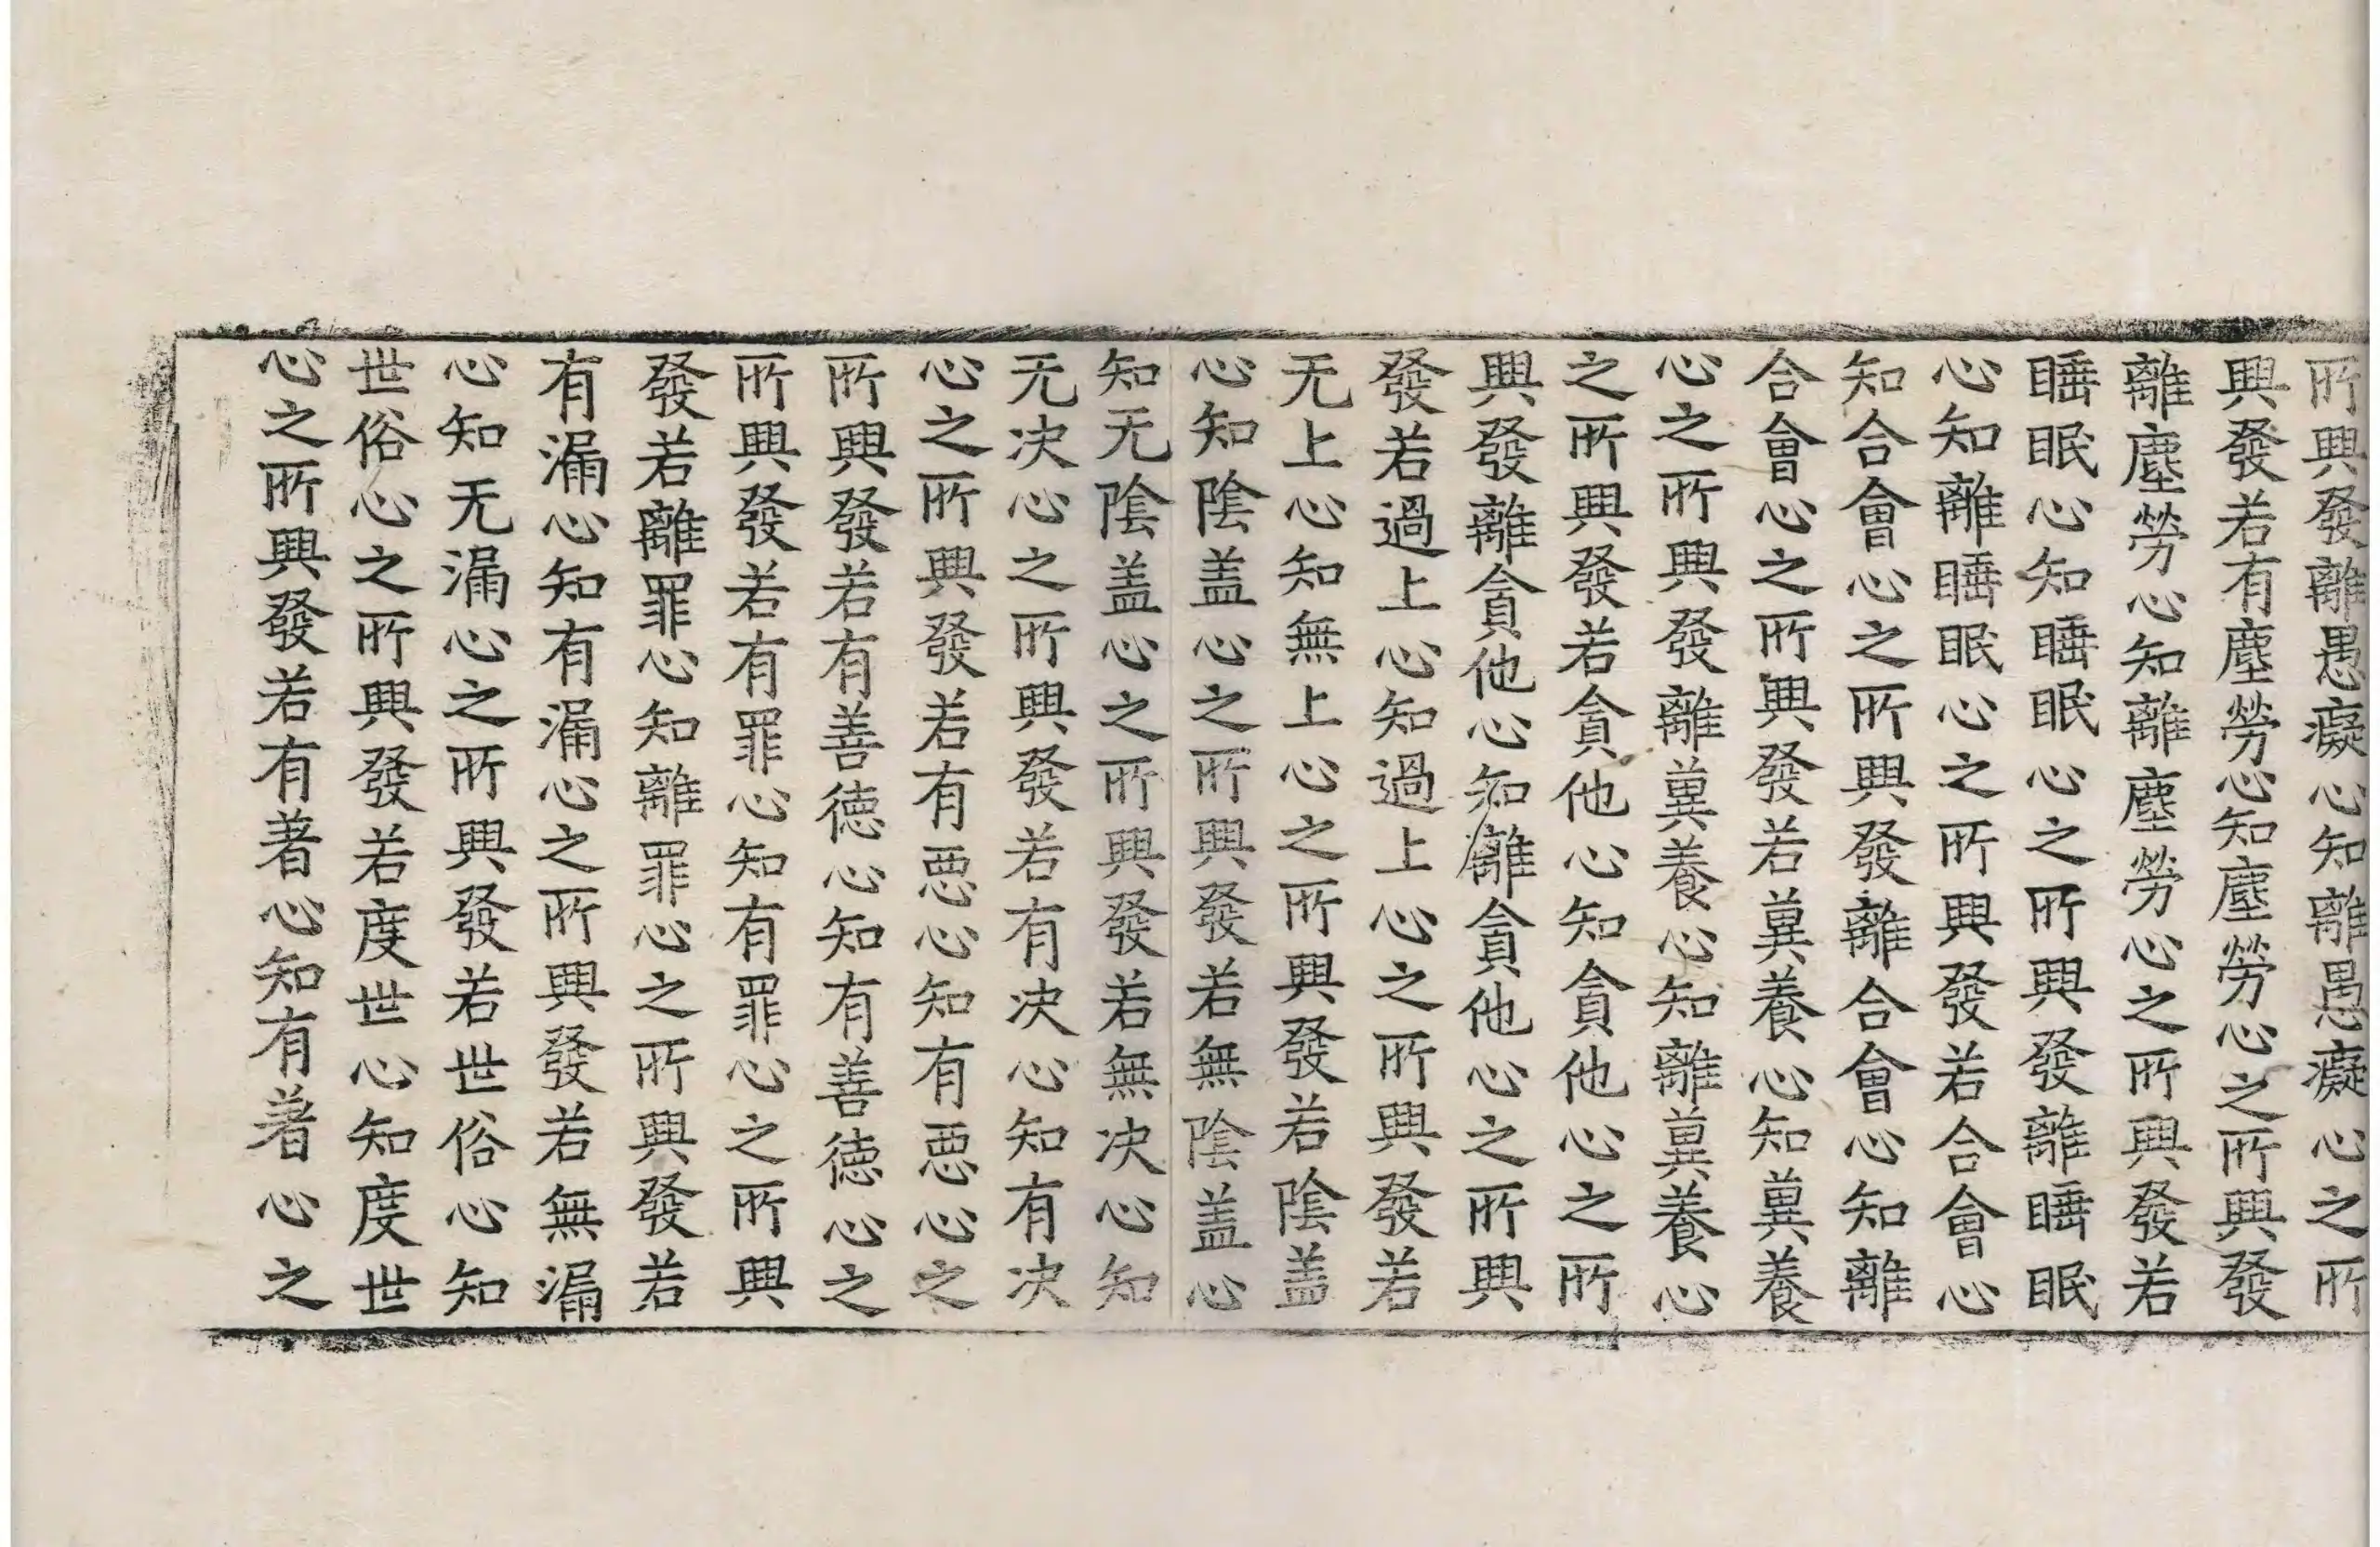 所興發離愚癡心知離愚癡心之所
興發若有塵勞心知塵勞心之所興發
離塵勞心知離塵勞心之所興發若
睡眠心知睡眠心之所興發離睡眠
心知離睡眠心之所興發若合會心
知合會心之所興發離合會心知離
合會心之所興發若冀養心知冀養
心之所興發離冀養心知離冀養心
之所興發若貪他心知貪他心之所
興發離貪他心知離貪他心之所興
發若過上心知過上心之所興發若
无上心知無上心之所興發若陰盖
心知陰盖心之所興發若無陰盖心
知无陰盖心之所興發若無决心知
无决心之所興發若有决心知有决
心之所興發若有惡心知有惡心之
所興發若有善德心知有善德心之
所興發若有罪心知有罪心之所興
發若離罪心知離罪心之所興發若
有漏心知有漏心之所興發若無漏
心知无漏心之所興發若世俗心知
世俗心之所興發若度世心知度世
心之所興發若有著心知有著心之